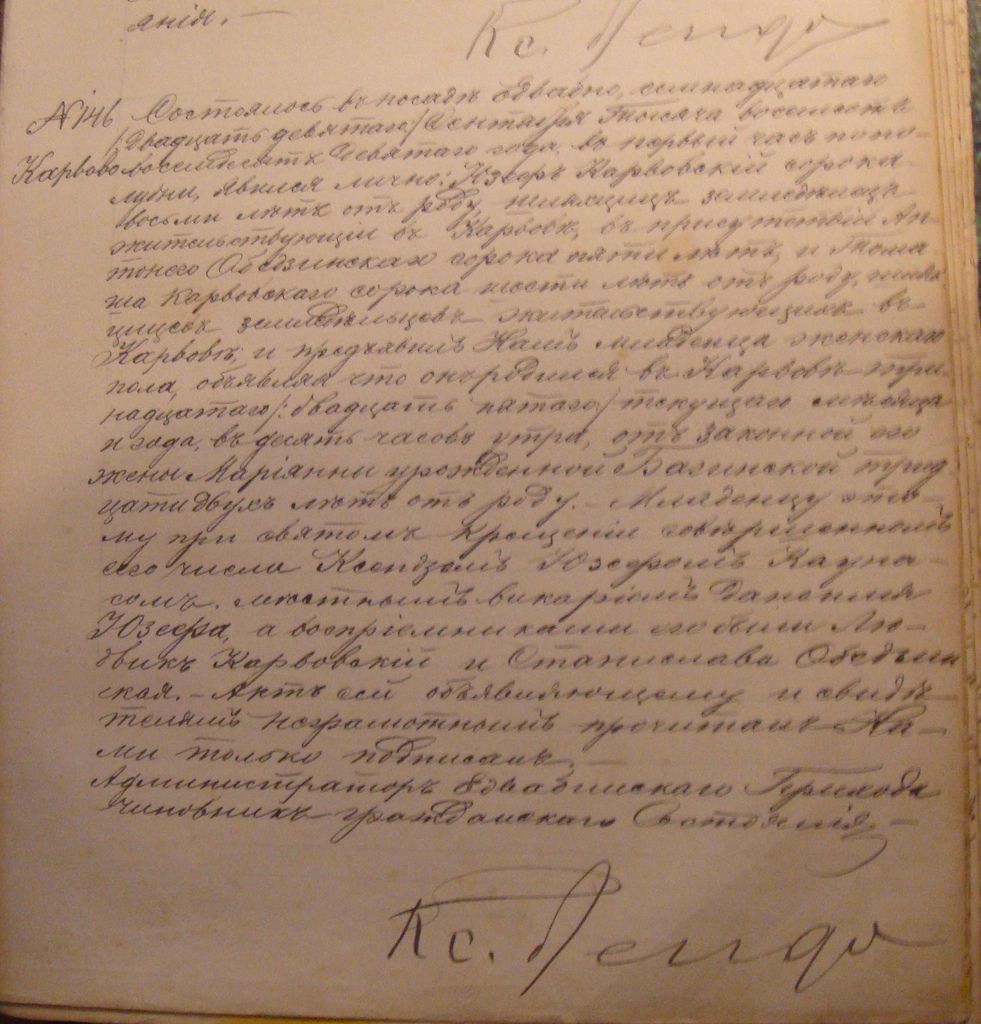 янія. —
Кс. Пенго
№146 Состоялось въ посадѣ Едвабно, семнадцатаго
/Двадцать девятаго/ Сентября Тысяча восемсотъ
Карвово восемьдесятъ Девятаго года, въ первый часъ попо-
лудни, явился лично: Юзефъ Карвовскій сорока
восьми лѣтъ отъ роду, шляхтичъ земледѣлецъ
жительствующій въ Карвовѣ, въ присутствіи Ан-
тонего сорока пяти лѣтъ, и Тома
ша Карвовскаго сорока шести лѣтъ отъ роду, шлях
земледѣльцевъ жительствующихъ въ
Карвовѣ, и предъявилъ Намъ младенца женскаго
пола, объявляя что онъ родился въ Карвовѣ три
надцатаго /: двадцать пятаго / текущаго мѣсяца
и года, въ десять часовъ утра, отъ законной его
жены Маріанны урожденной Багинской трид
цати двухъ лѣтъ отъ роду. — Младенцу это-
му при святомъ крещеніи совершенномъ
сего числа Ксендзомъ Юзефомъ Кауна-
сомъ, мѣстнымъ викаріемъ дано имя
Юзефа, а воспріемниками его были Лю-
двикъ Карвовскій и Станислава
ская. — Актъ сей объявляющему и свидѣ-
телямъ неграмотнымъ прочитанъ На-
ми только подписанъ. —
Администраторъ Едвабинскаго Прихода
Чиновникъ гражданскаго Состоянія —
Кс. Пенго